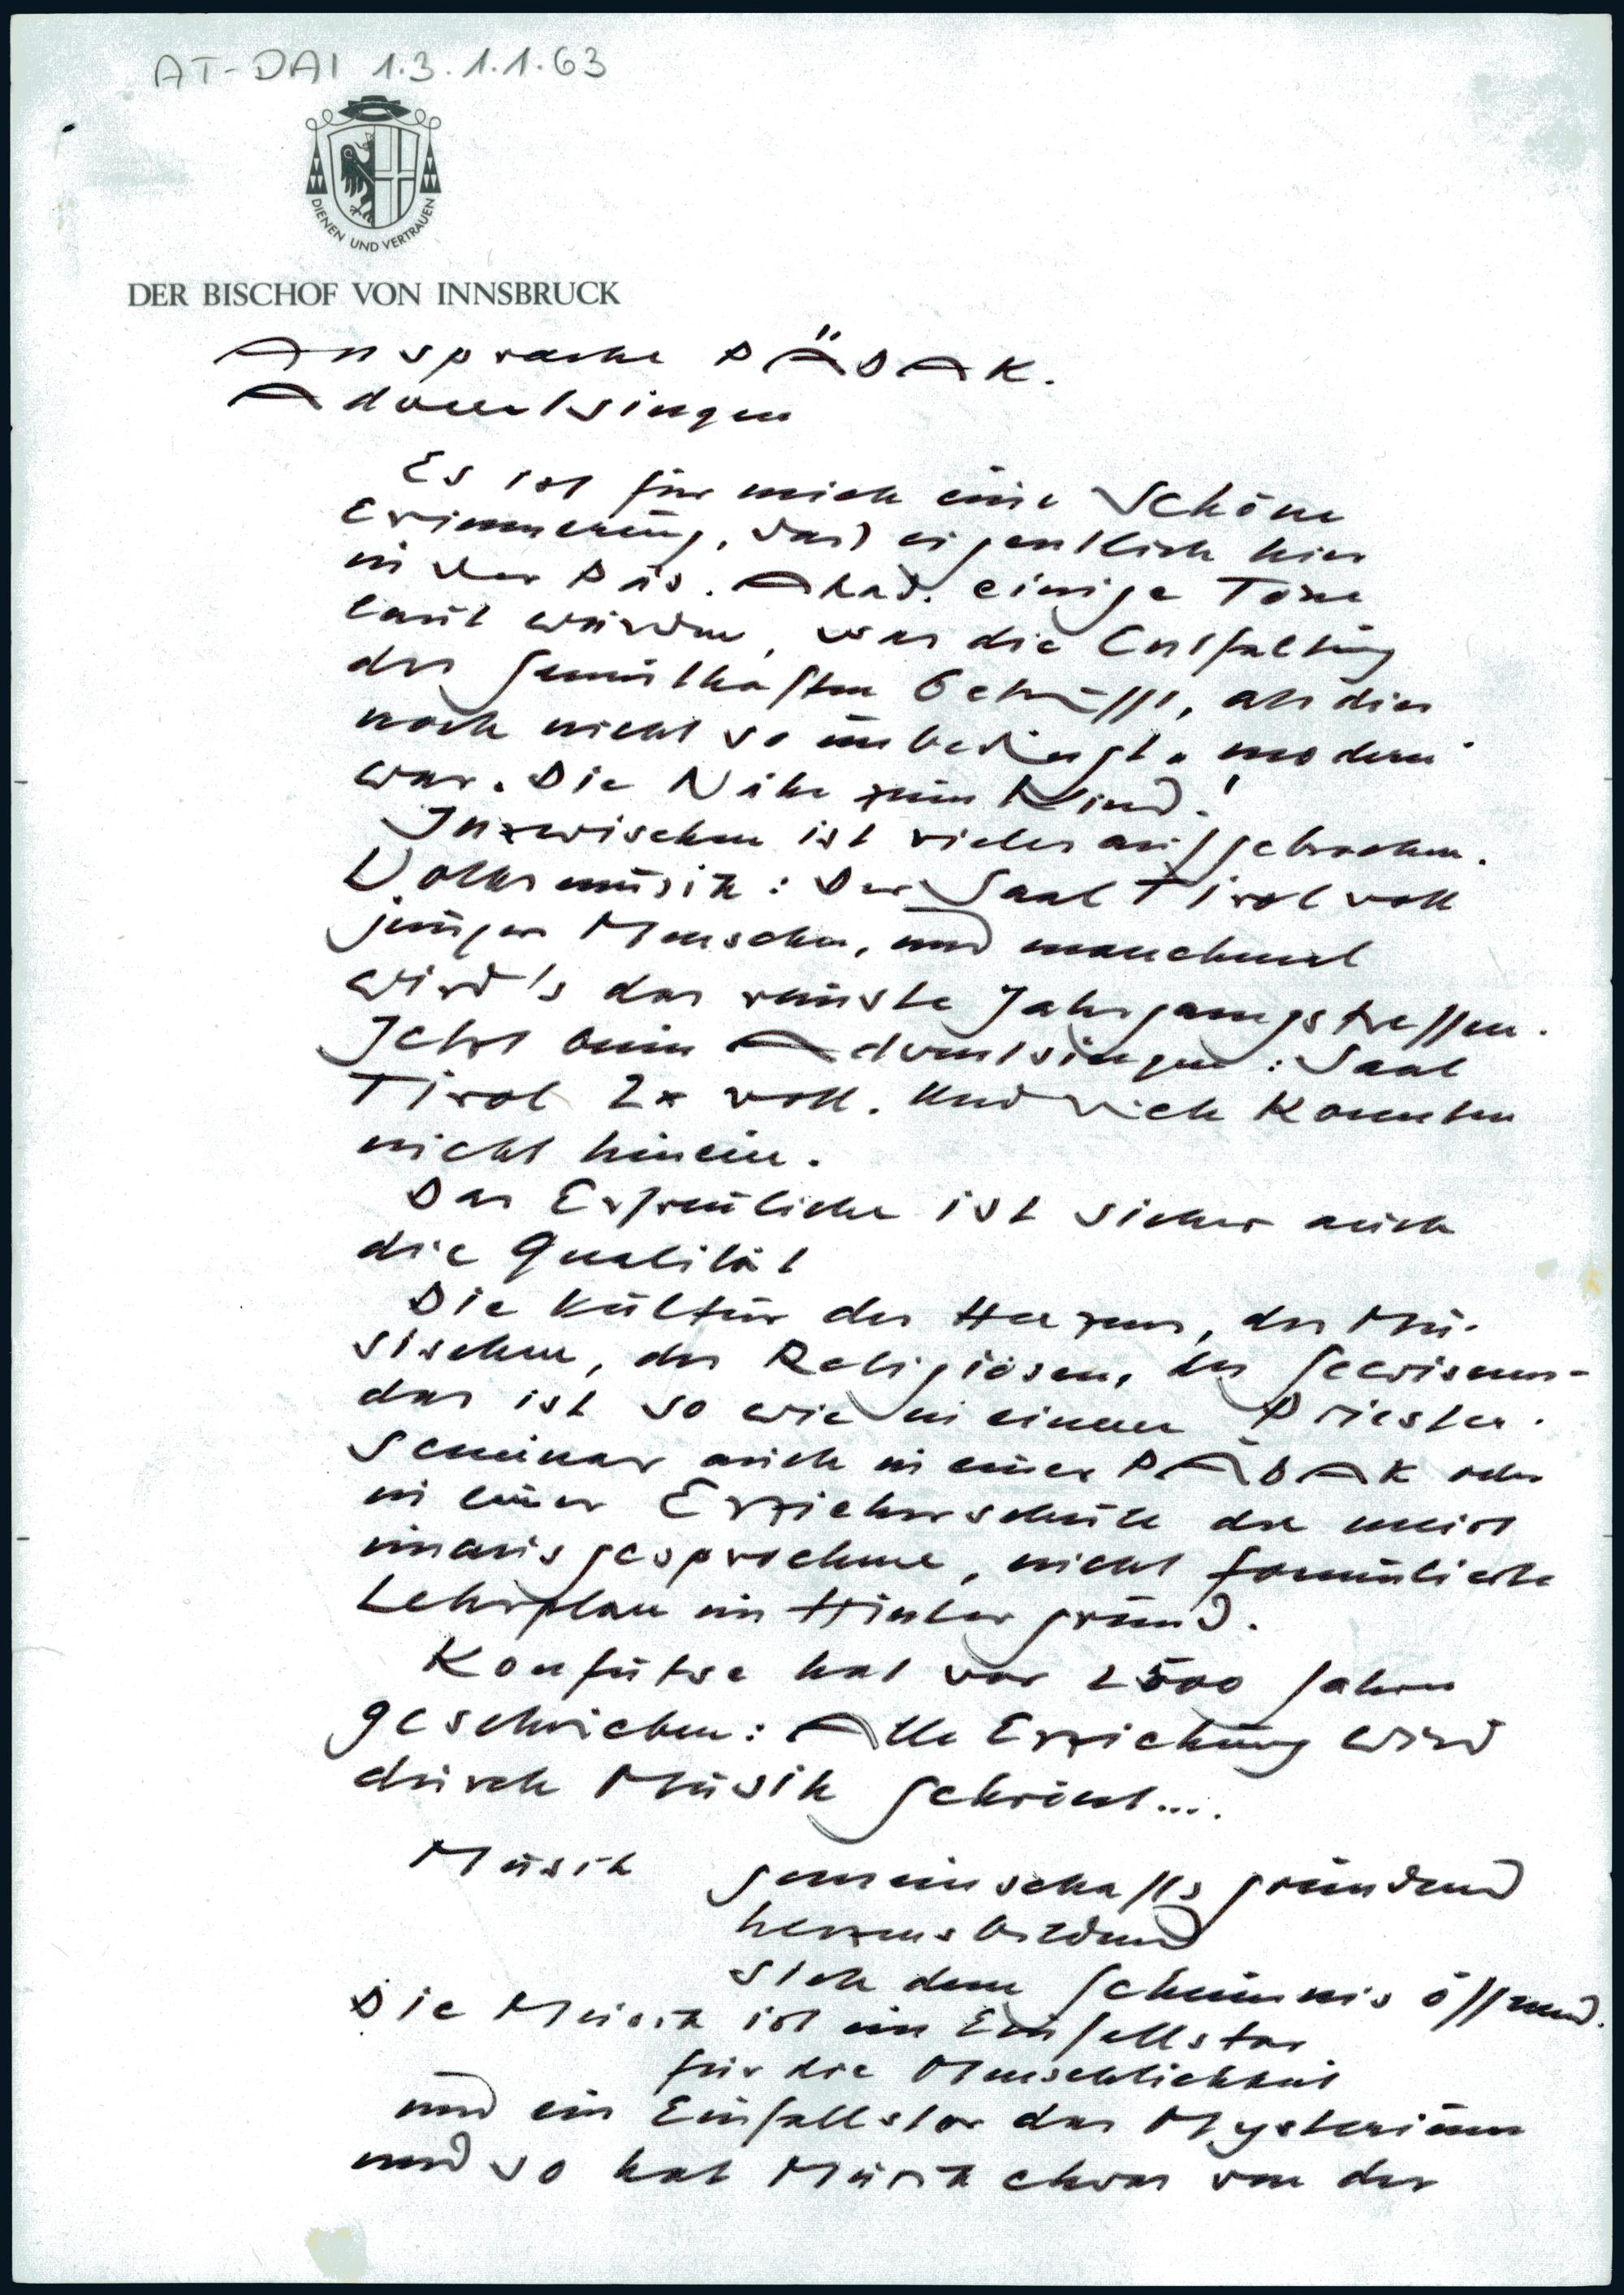 AT-DAI 1.3.1.1.63
DIENEN UND VERTRAUEN
DER BISCHOF VON INNSBRUCK
Ansprache PÄDAK.
Adventsingen
Es ist für mich eine schöne
Erinnerung, dass eigentlich hier
in der Päd. Akad. einige Töne
laut wurden, was die Entfaltung
des Gemüthaften betrifft, als dies
noch nicht so unbedingt "modern"
war. Die Nähe zum Kind!
Inzwischen ist vieles aufgebrochen.
Volksmusik: Der Saal Tirol voll
junger Menschen, und manchmal
wird's das reinste Jahrgangstreffen.
Jetzt beim Adventsingen: Saal
Tirol 2x voll. Und viele konnten
nicht hinein.
Das Erfreuliche ist sicher auch
die Qualität
Die Kultur des Herzens, des Mu-
sischen, des Religiösen, des Gewissens-
das ist so wie in einem Priester-
seminar auch in einer PÄDAK oder
in einer Erzieherschule der meist
unausgesprochene, nicht formulierte
Lehrplan im Hintergrund.
Konfutse hat vor 2500 Jahren
geschrieben: Alle Erziehung wird
durch Musik gekrönt....
Musik gemeinschaftsgründend
herzensbildend
sich dem Geheimnis öffnend.
Die Musik ist ein Einfallstor
für die Menschlichkeit
und ein Einfallstor des Mysterium
und so hat Musik etwas von der